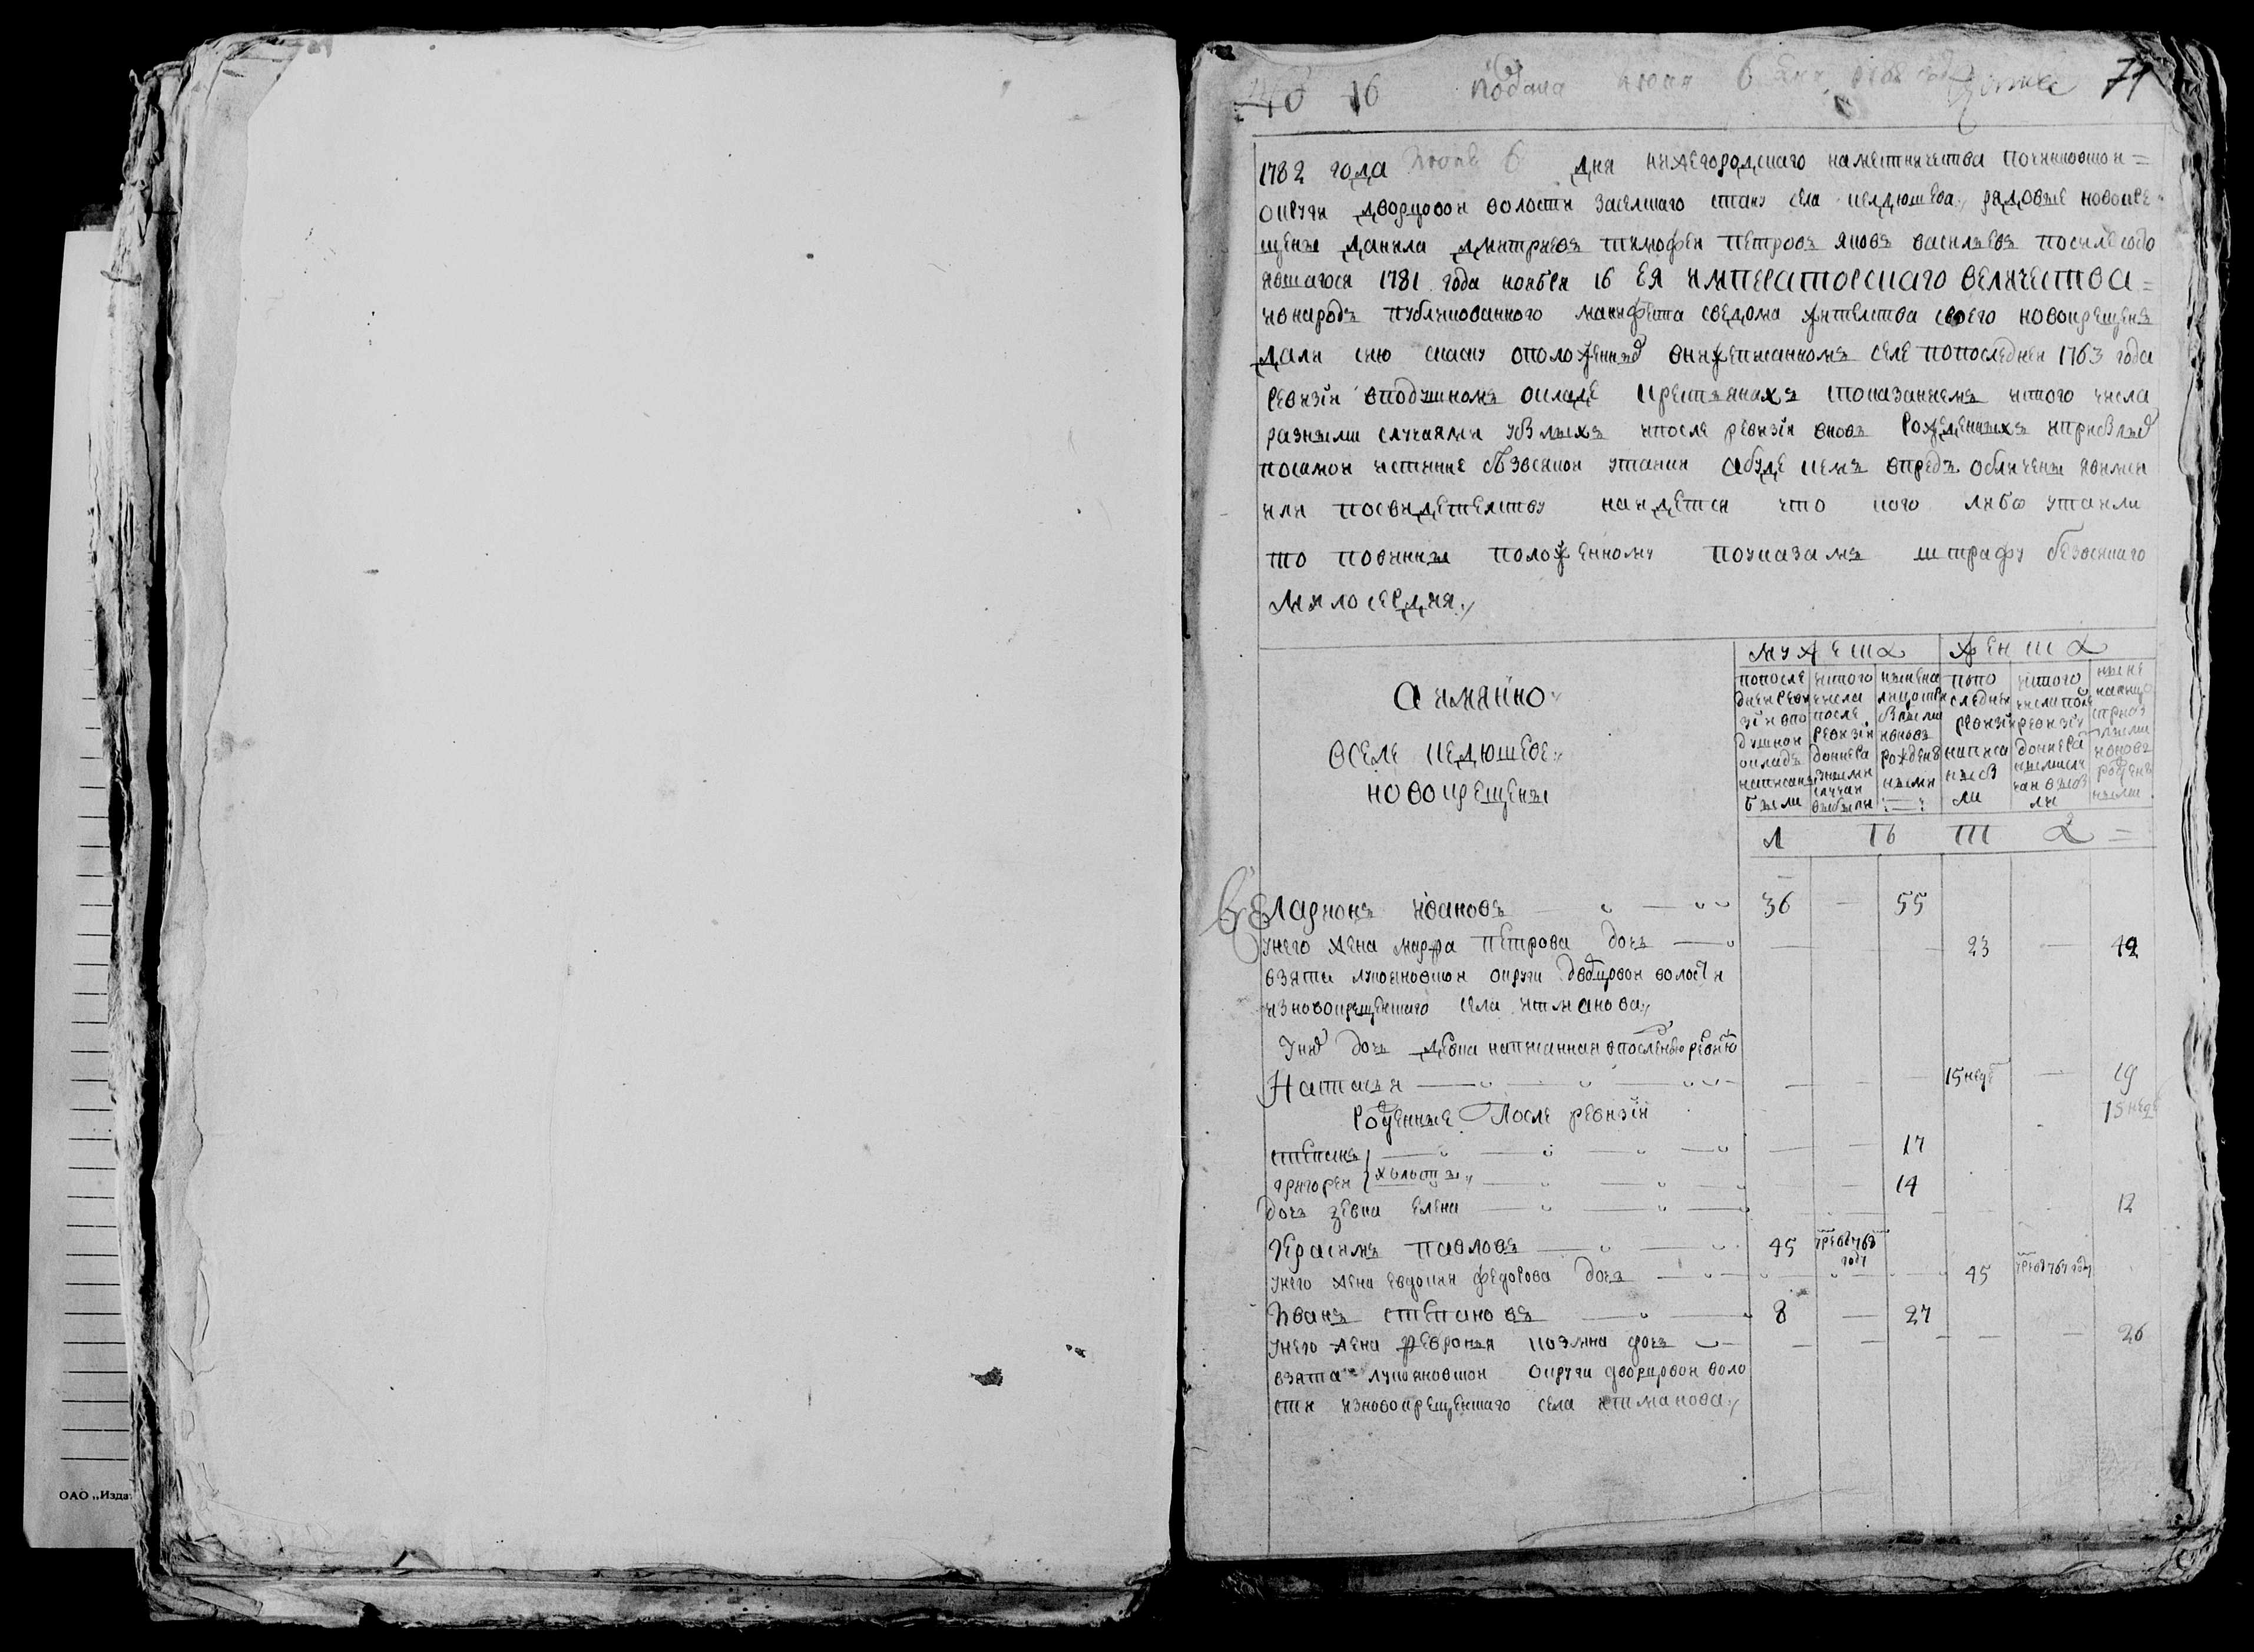 ОАО „Изда
40 16 подана июня 6 дня 71
1782 года июня 6 дня нижегородскаго наместничества починковской =
округи дворцовой волости заселнаго стану села келдюшева, рядовые новокре
щены данила дмитриевъ тимофей петровъ яковъ васильевъ посиле состо
явшагося 1781 года ноября 16 ея императорскаго величества =
внародъ публикованного манифеста сведома жителства своего новокрещенъ
дали сию сказку оположенныхъ внижеписанномъ селе попоследней 1763 года
ревизiи вподушномъ окладе крестьянахъ спок​азаниемъ истого числа
разными случаями убылыхъ ипосле ревизiи вновь рожденныхъ иприбылых
посамой истинне безвсякой утайки абуде кемъ впредь обличены явимся
или посвидетелству найдется что кого либо утаили
то повинны положенному поуказамъ штрафу безвсякаго
милосердия,
мужеска женска
попосле
дней реви
зiи впо
душной
окладъ
написаны
были
истого
числа
после
ревизiи
донне
разными
случаи
выбыли
рожденны
попо
следней
ревизiи
написа
ны бы
ли
истого
числа после
ревизiи
ныне
А имянно
вселе келдюшеве
новокрещены
л ѣ т а =
Ларионъ ивановъ 36 — 55
унего жена марфа петрова дочь — 23 — 42
взята лукояновской округи дворцовой волости
изновокрещенскаго села итманова,
унихъ дочь девка написанная впоследнюю ревизiю
Наталья 15 неде — 19
15 неде
рожденные После ревизiи
степанъ — 17
григорей } холосты, — 14
дочь девка елена — 12
Герасимъ павловъ — 45 умре в 768 году
унего жена евдокия федорова дочь — 45 умре в 767 году
Иванъ степановъ — 8 — 27
унего жена февронья козмина дочь — 26
взята лукояновской округи дворцовой воло
сти изновокрещенскаго села итманова,